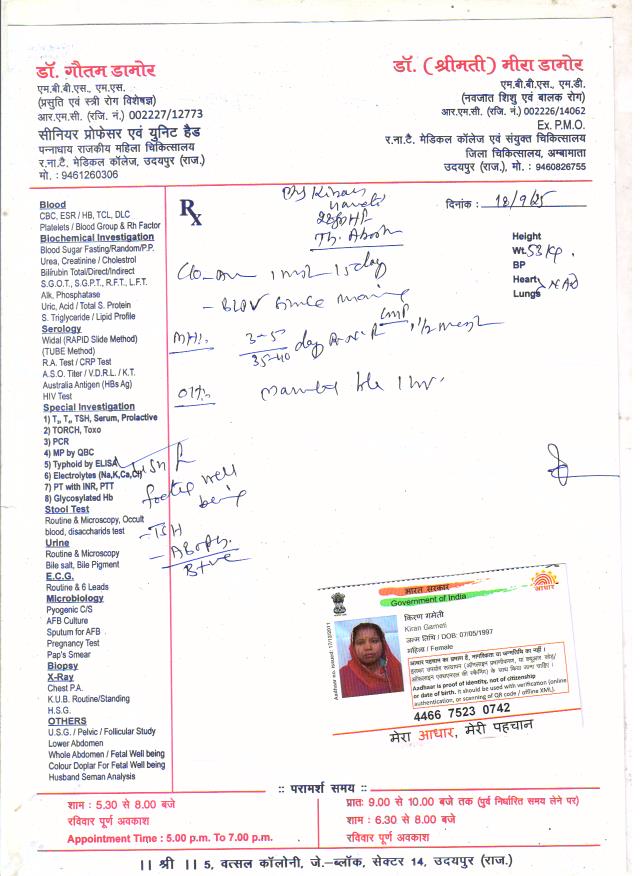 डॉ. गौतम डामोर
एम.बी.बी.एस., एम.एस.
(प्रसुति एवं स्त्री रोग विशेषज्ञ)
आर.एम.सी. (रजि. नं.) 002227/12773
सीनियर प्रोफेसर एवं युनिट हैड
पन्नाधाय राजकीय महिला चिकित्सालय
र.ना.टै. मेडिकल कॉलेज, उदयपुर (राज.)
मो. : 9461260306
डॉ. (श्रीमती) मीरा डामोर
एम.बी.बी.एस., एम.डी.
(नवजात शिशु एवं बालक रोग)
आर.एम.सी. (रजि. नं.) 002226/14062
Ex. P.M.O.
र.ना.टै. मेडिकल कॉलेज एवं संयुक्त चिकित्सालय
जिला चिकित्सालय, अम्बामाता
उदयपुर (राज.), मो. : 9460826755
Rx
Kiran
दिनांक : 18/9/25
Height
Wt. 53 Kg.
BP
Heart
Lungs NAD
1 1/2
MH:-
3-5
35-40 day
LMP
Blood
CBC, ESR / HB, TCL, DLC
Platelets / Blood Group & Rh Factor
Biochemical Investigation
Blood Sugar Fasting/Random/P.P.
Urea, Creatinine / Cholestrol
Bilirubin Total/Direct/Indirect
S.G.O.T., S.G.P.T., R.F.T., L.F.T.
Alk, Phosphatase
Uric, Acid / Total S. Protein
S. Triglyceride / Lipid Profile
Serology
Widal (RAPID Slide Method)
(TUBE Method)
R.A. Test / CRP Test
A.S.O. Titer / V.D.R.L. / K.T.
Australia Antigen (HBs Ag)
HIV Test
Special Investigation
1) T₃, T₄, TSH, Serum, Prolactive
2) TORCH, Toxo
3) PCR
4) MP by QBC
5) Typhoid by ELISA
6) Electrolytes (Na,K,Ca,Cl)
7) PT with INR, PTT
8) Glycosylated Hb
Stool Test
Routine & Microscopy, Occult
blood, disaccharids test
Urine
Routine & Microscopy
Bile salt, Bile Pigment
E.C.G.
Routine & 6 Leads
Microbiology
Pyogenic C/S
AFB Culture
Sputum for AFB
Pregnancy Test
Pap's Smear
Biopsy
X-Ray
Chest P.A.
K.U.B. Routine/Standing
H.S.G.
OTHERS
U.S.G. / Pelvic / Follicular Study
Lower Abdomen
Whole Abdomen / Fetal Well being
Colour Doplar For Fetal Well being
Husband Seman Analysis
foetal well
being
- TSH
B+ve
भारत सरकार
Government of India
आधार
Aadhaar no. issued: 17/10/2011
किरण गमेती
Kiran Gameti
जन्म तिथि / DOB: 07/05/1997
महिला / Female
आधार पहचान का प्रमाण है, नागरिकता या जन्मतिथि का नहीं।
Aadhaar is proof of identity, not of citizenship
or date of birth. It should be used with verification (online
authentication, or scanning of QR code / offline XML).
4466 7523 0742
मेरा आधार, मेरी पहचान
:: परामर्श समय :-
शाम : 5.30 से 8.00 बजे
रविवार पूर्ण अवकाश
Appointment Time : 5.00 p.m. To 7.00 p.m.
प्रातः 9.00 से 10.00 बजे तक (पुर्व निर्धारित समय लेने पर)
शाम : 6.30 से 8.00
रविवार पूर्ण अवकाश
।। श्री ।। 5, वत्सल कॉलोनी, जे.-ब्लॉक, सेक्टर 14, उदयपुर (राज.)